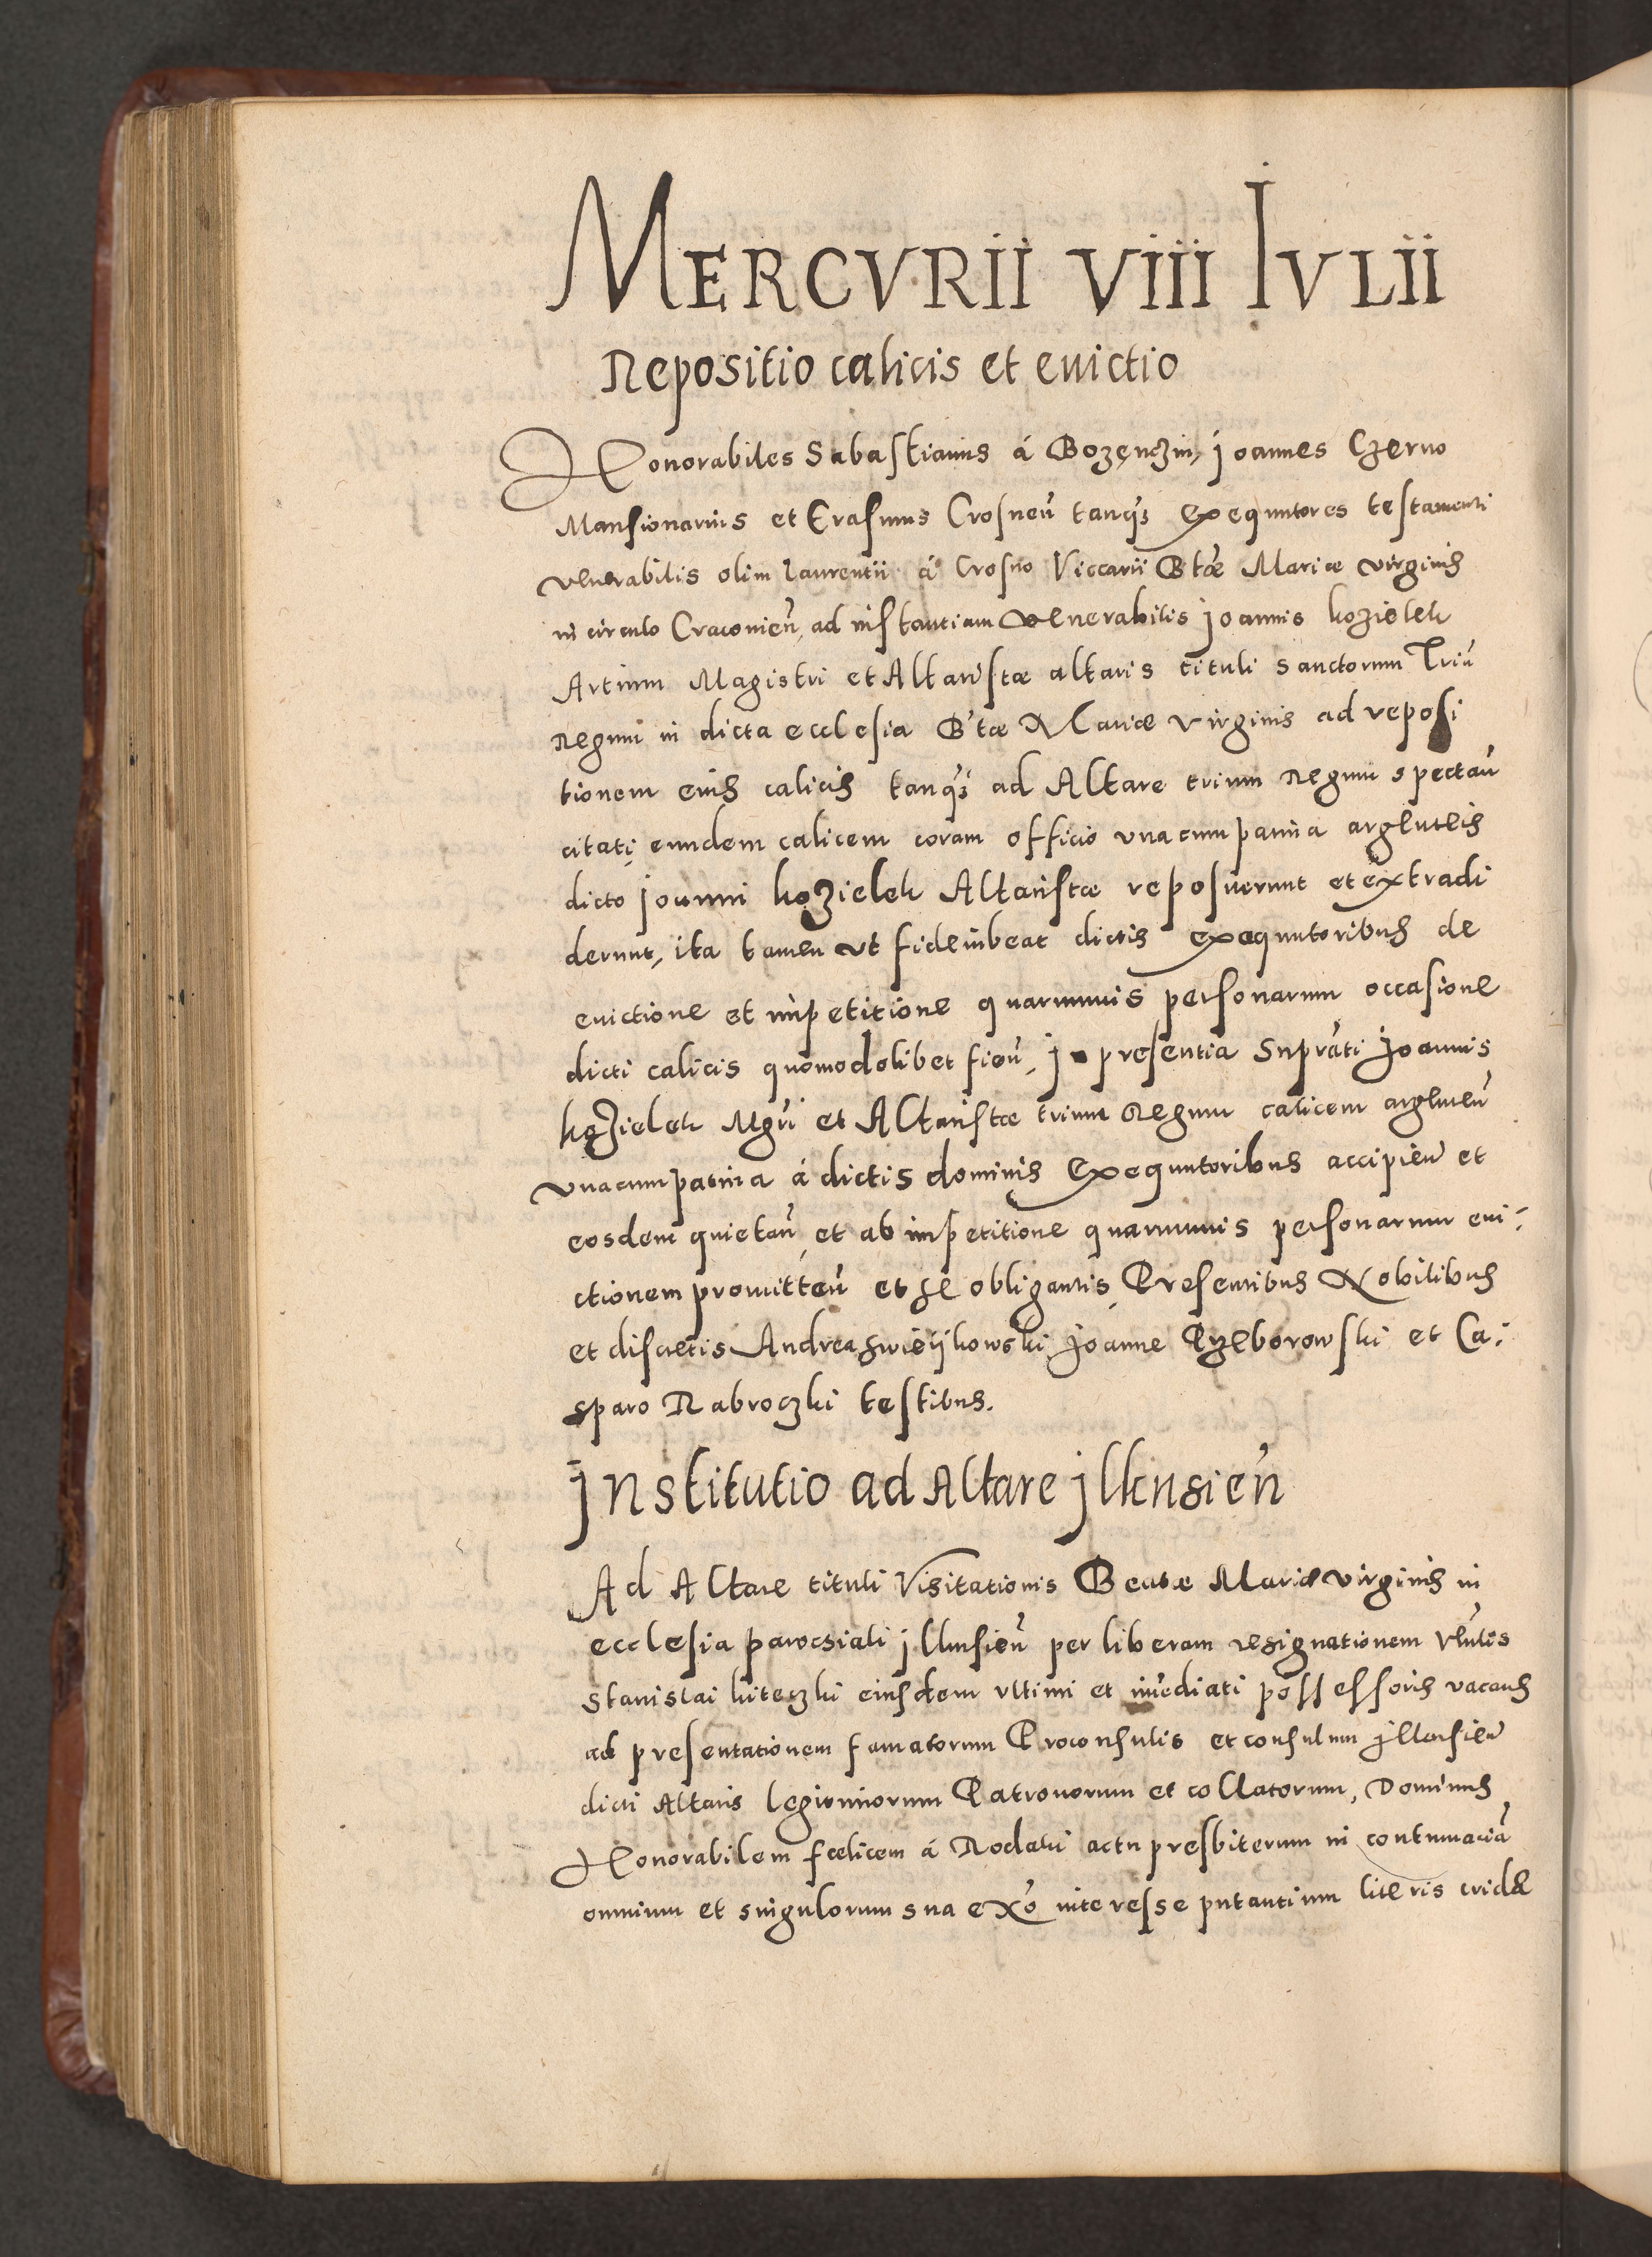 MERCVRII VIII IVLII
Repositio calicis et euictio
Honorabiles Sabastianus á Bozęnczin, Joannes Czerno
Mansionarius et Erasmus Crosneñ tanq̃ʒ exequutores testamenti
venerabilis olim laurentii á Crosno Viccarii Btæ Mariæ virginis
in circulo Cracovieñ, ad instantiam venerabilis Joannis kozielek
Artium Magistri et Altaristæ altaris tituli sanctorum Triũ
Regum in dicta ecclesia B'tæ Mariæ Virginis ad reposi
tionem eius calicis tanq̃ʒ ad Altare trium Regum spectañ
citati, eundem calicem coram officio vnacum patina argenteis
dicto Joanni kozielek Altaristæ reposuerunt et extradi
derunt, ita tamen vt fideiubeat dictis exequutoribus de
euictione et impetitione quarumuis personarum occasione
dicti calicis quomodolibet fieñ, In presentia Suprati Joannis
kozielek Mgri et Altaristæ trium Regum calicem argenteũ
vnacum patina á dictis dominis Exequutoribus accipieñ et
eosdem quietañ, et ab impetitione quarumuis personarum eui-
ctionem promitteñ et se obligantis, Presentibus Nobilibus
et discretis Andrea swieijkowski Joanne Pzeborowski et Ca-
sparo Rabroczki testibus.
Institutio ad Altare Jlkusieñ
Ad Altare tituli Visitationis Beatæ Mariæ virginis in
ecclesia parocsiali Jlkusieñ per liberam resignationem Vñlis
Stanislai kiteczki eiusdem vltimi et im̃ediati possessoris vacans
ad presentationem famatorum Proconsulis et consulum Jlkusieñ
dicti Altaris legitimorum Patronorum et collatorum, Dominus
Honorabilem fœlicem á Rodaki actu presbiterum in contumaciã
omnium et singulorum sua exõ interesse putantium literis cridæ